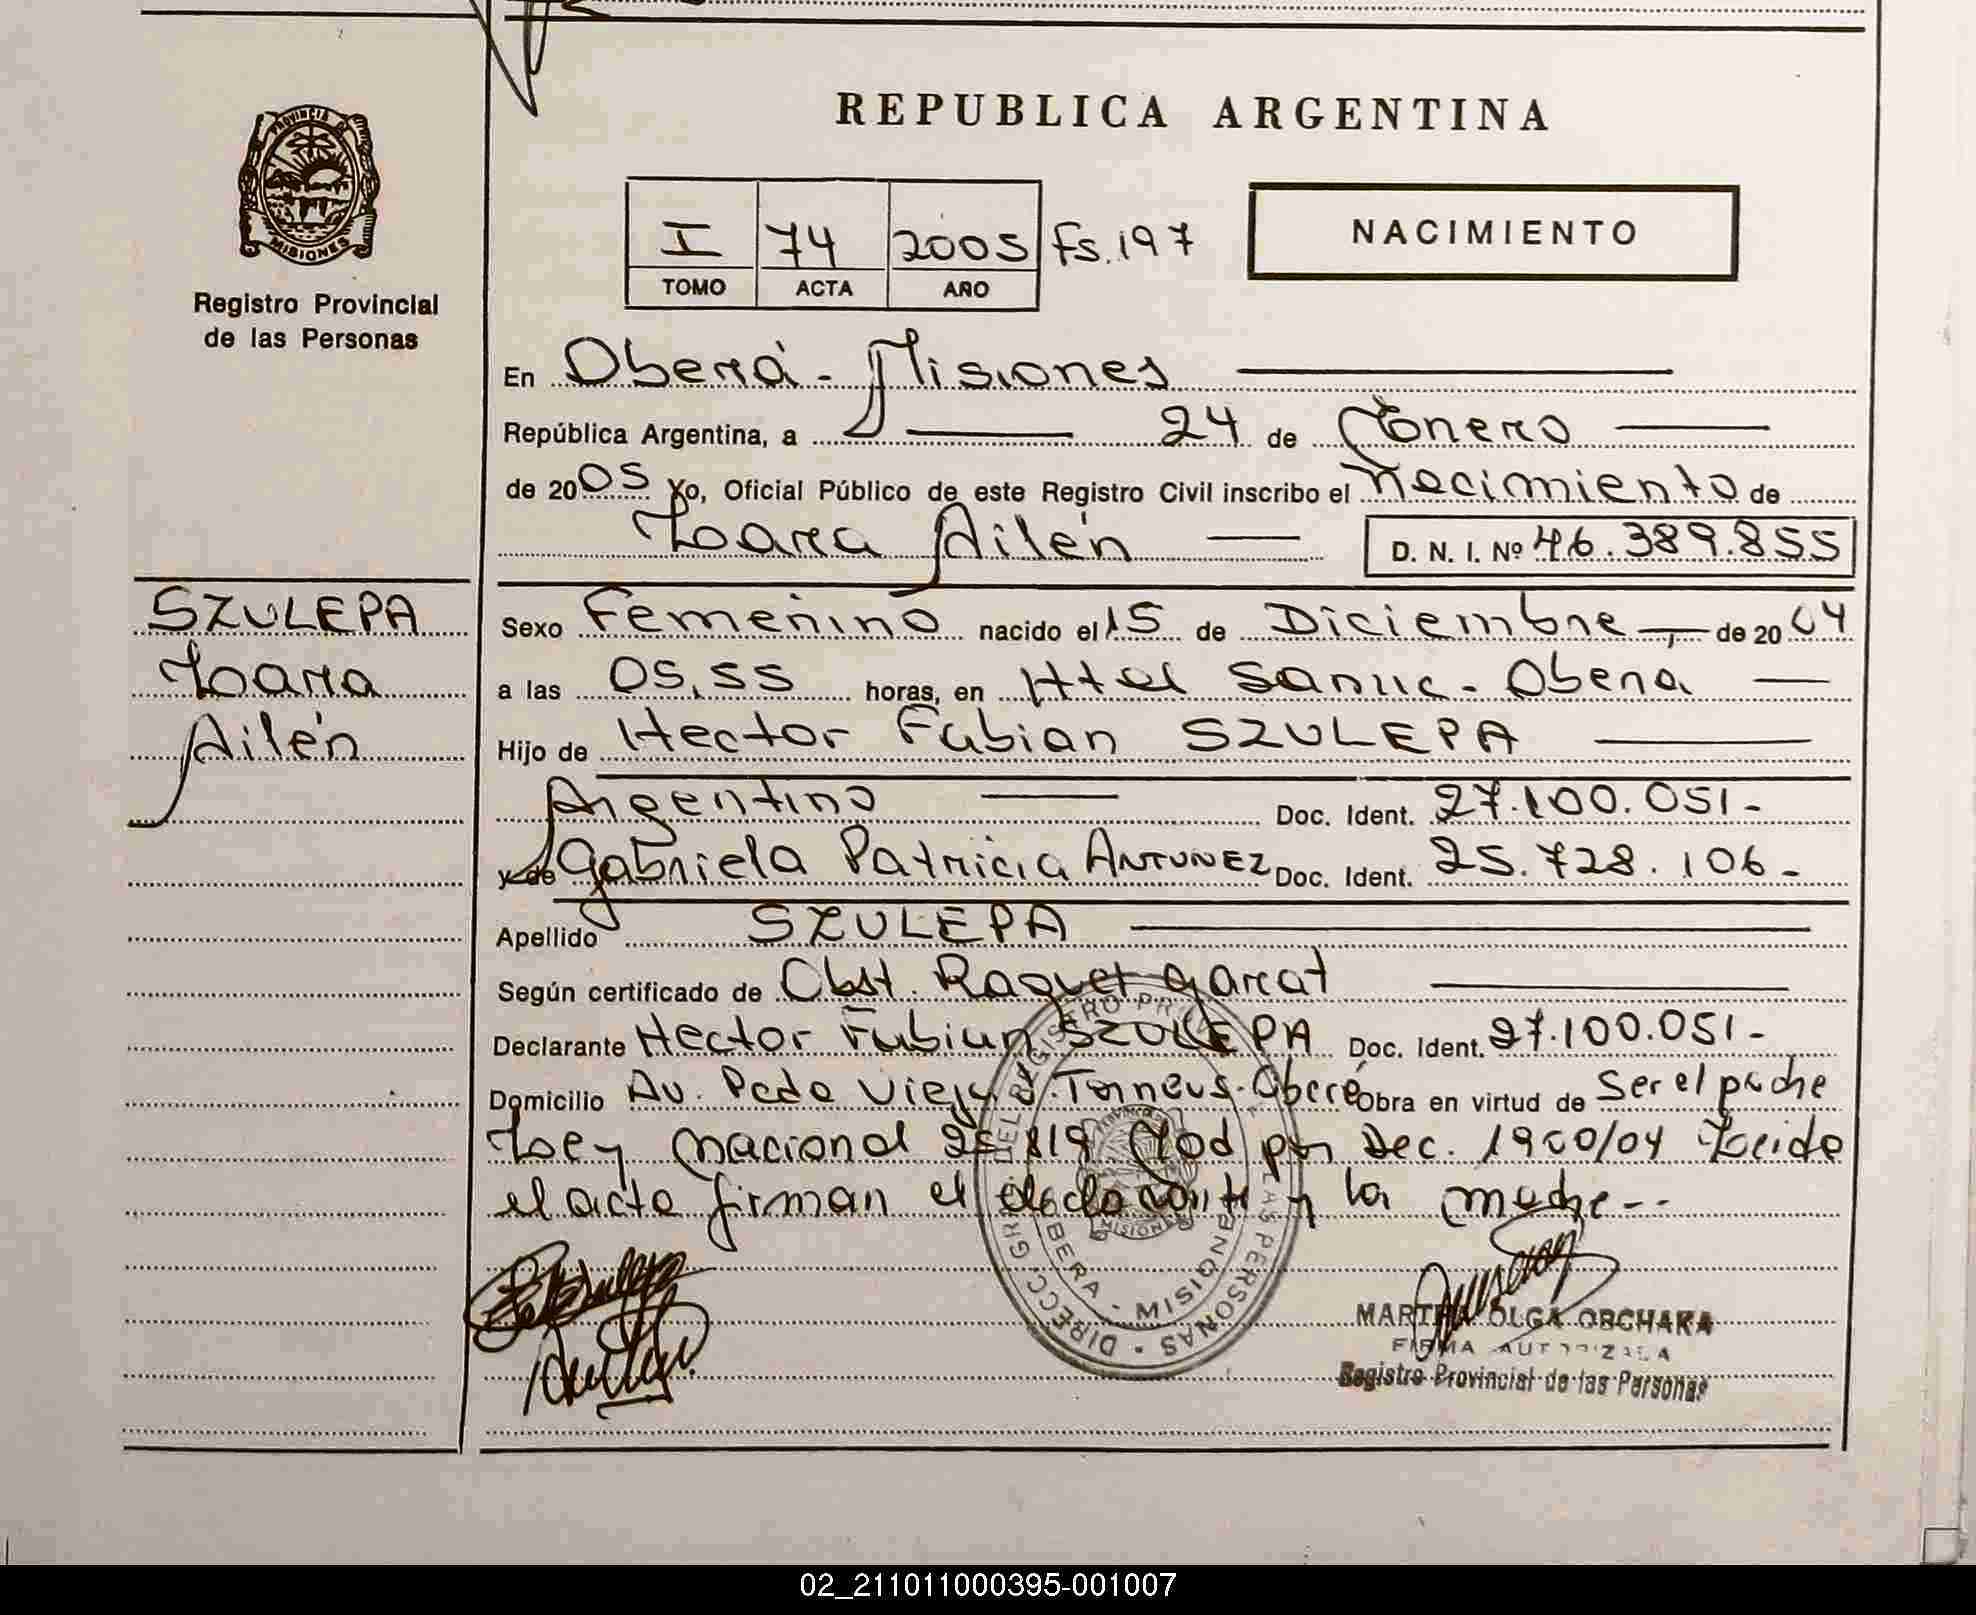 REPUBLICA ARGENTINA
PROVINCIA DE
MISIONES
Registro Provincial
de las Personas
I 74 2005 Fs. 197
TOMO ACTA AÑO
NACIMIENTO
En Oberá - Misiones
República Argentina, a 24 de Enero
de 2005 Yo, Oficial Público de este Registro Civil inscribo el nacimiento de
Loara Ailén D. N. I. Nº 46.389.855
SZULEPA
Loara
Ailén
Sexo Femenino nacido el 15 de Diciembre de 2004
a las 05,55 horas, en Htal Samic - Oberá
Hijo de Hector Fabian SZULEPA
Argentino Doc. Ident. 27.100.051-
y de Gabriela Patricia ANTUNEZ Doc. Ident. 25.728.106-
Apellido SZULEPA
Según certificado de Obst. Raquel
Declarante Hector Fabian SZULEPA Doc. Ident. 27.100.051-
Domicilio Av. Pcdo Oberá Obra en virtud de Ser el padre
Ley Nacional 25.819 Mod por Dec. 1900/04 Leido
el acta firman el declarante y la madre--
MARTHA OLGA OBCHAKA
FIRMA AUTORIZADA
Registro Provincial de las Personas
02_211011000395-001007